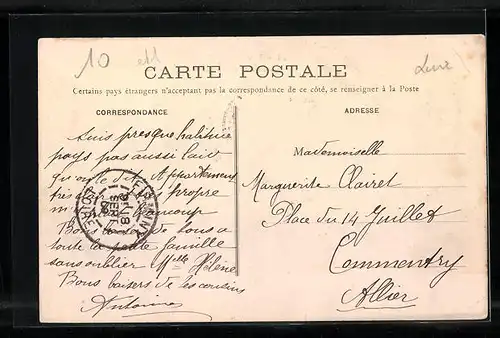 10
CARTE POSTALE
Certains pays étrangers n'acceptant pas la correspondance de ce côté, se renseigner à la Poste
CORRESPONDANCE
ADRESSE
Suis presque habitué
pays pas aussi laid
qu'on le dit. Appartement
propre
beaucoup
Bons baisers de tous à
toute la petite famille
sans oublier Melle Hélène
Bons baisers de les cousins
Antoine
Mademoiselle
Marguerite Clairet
Place du 14 Juillet
Commentry
Allier